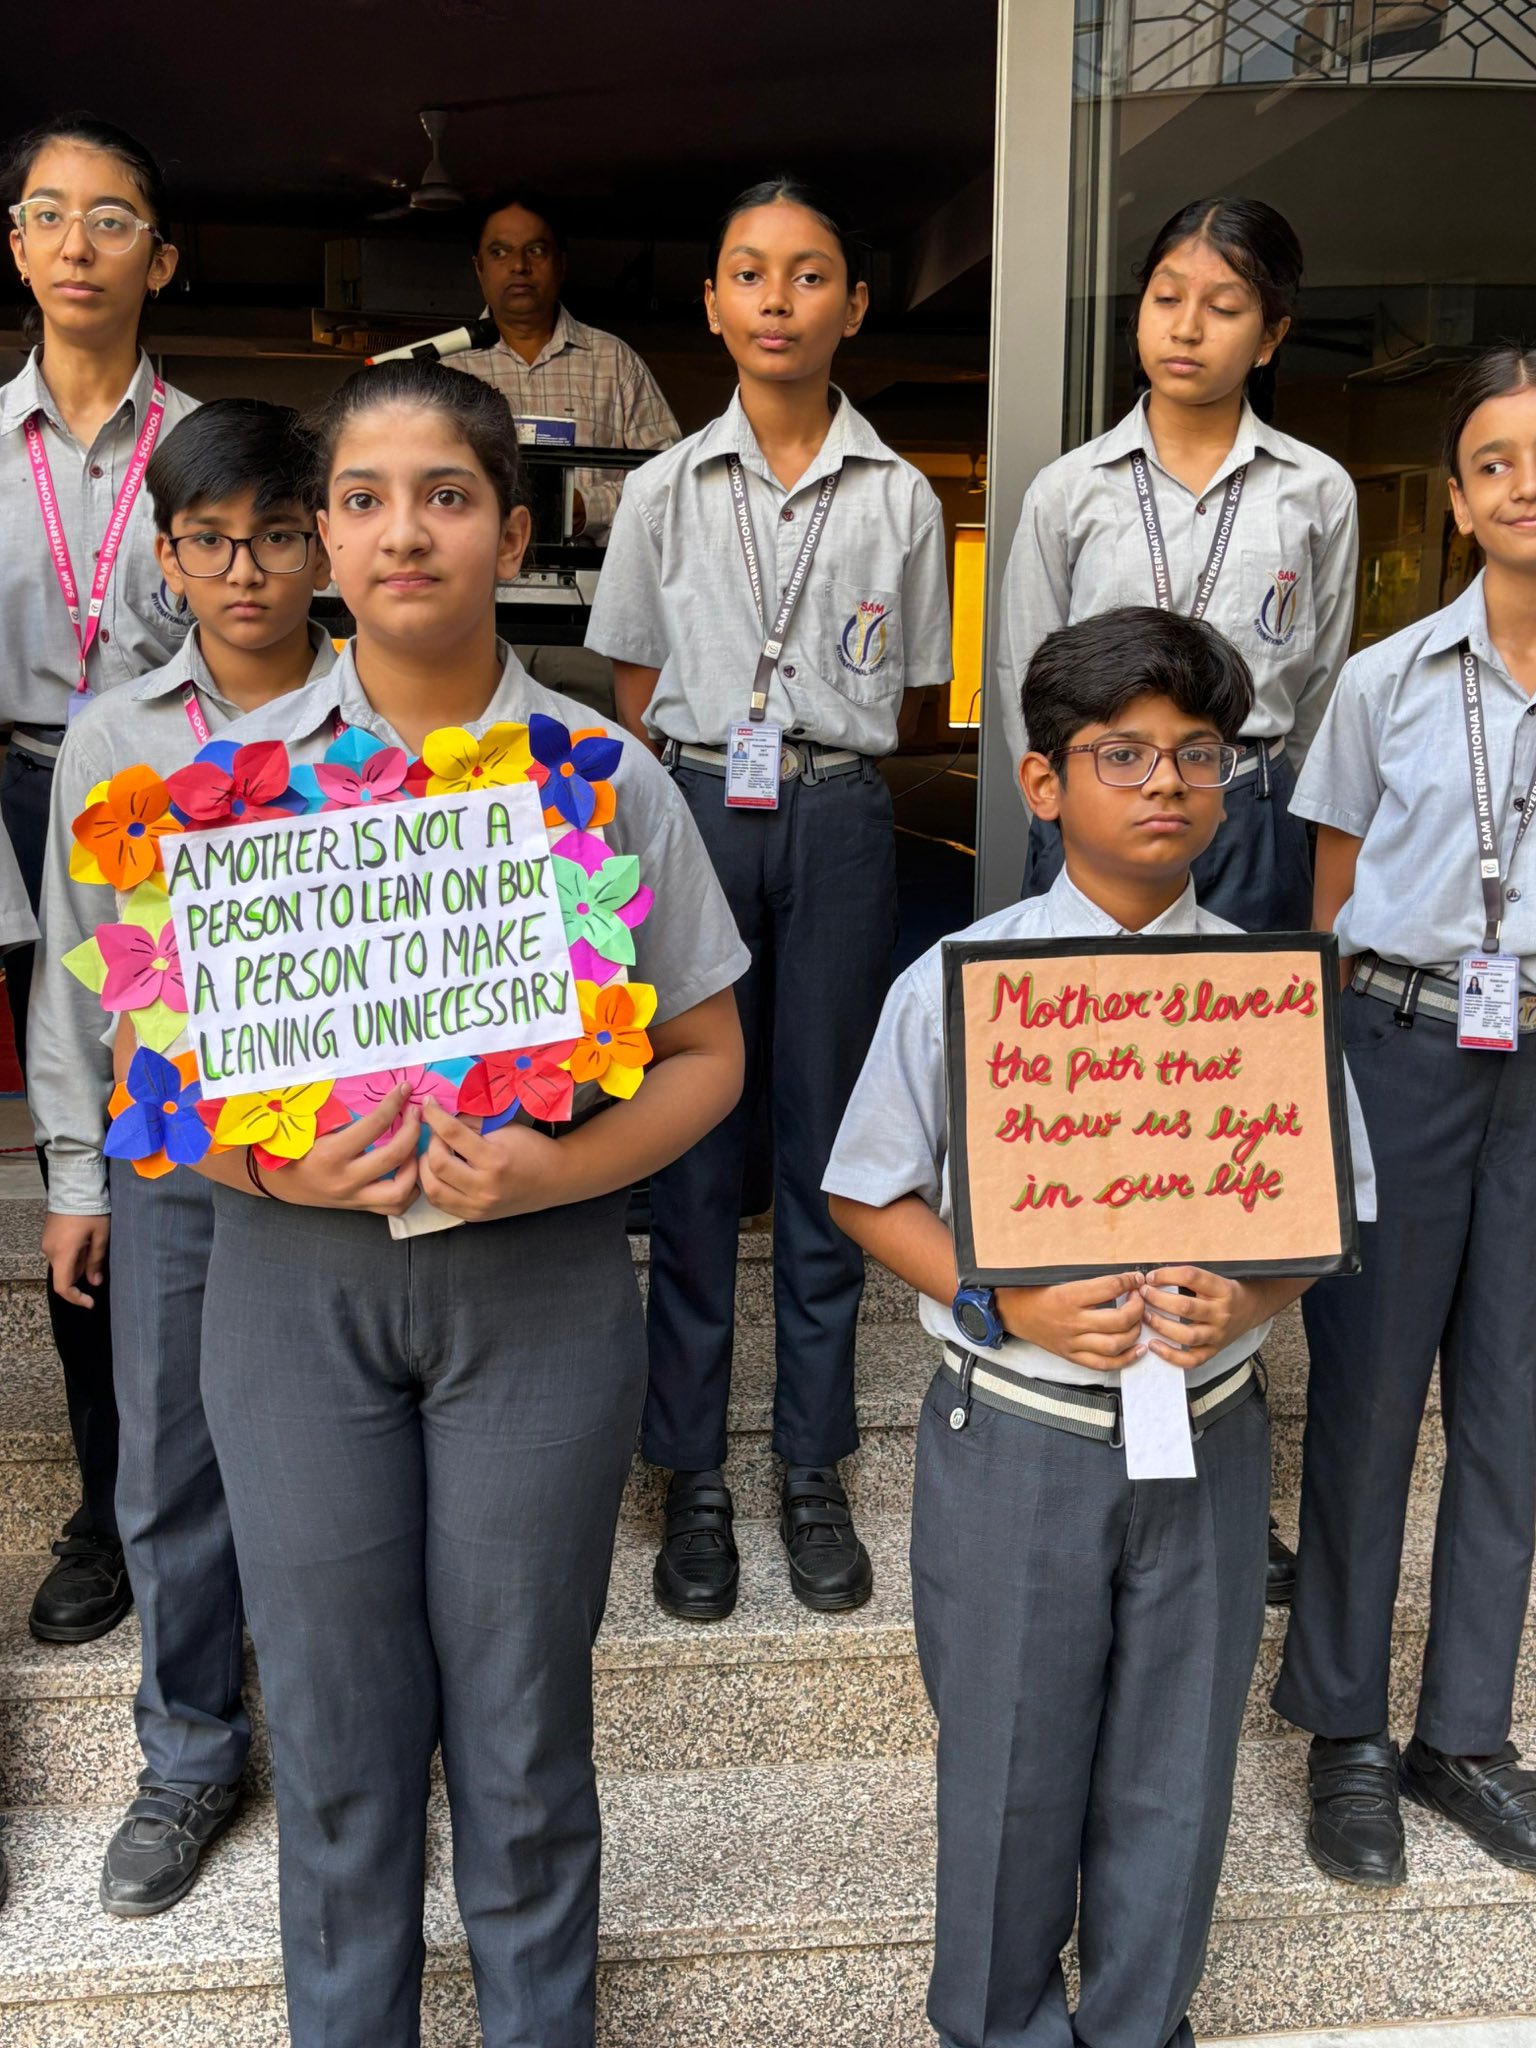 A MOTHER IS NOT A
PERSON TO LEAN ON BUT
A PERSON TO MAKE
LEANING UNNECESSARY
Mother's love is
the path that
show us light
in our life
SAM INTERNATIONAL SCHOOL
SAM INTERNATIONAL SCHOOL
SAM INTERNATIONAL SCHOOL
SAM INTERNATIONAL SCHOOL
SAM INTERNATIONAL
SAM
INTERNATIONAL SCHOOL
SAM
INTERNATIONAL SCHOOL
SAM INTERNATIONAL SCHOOL